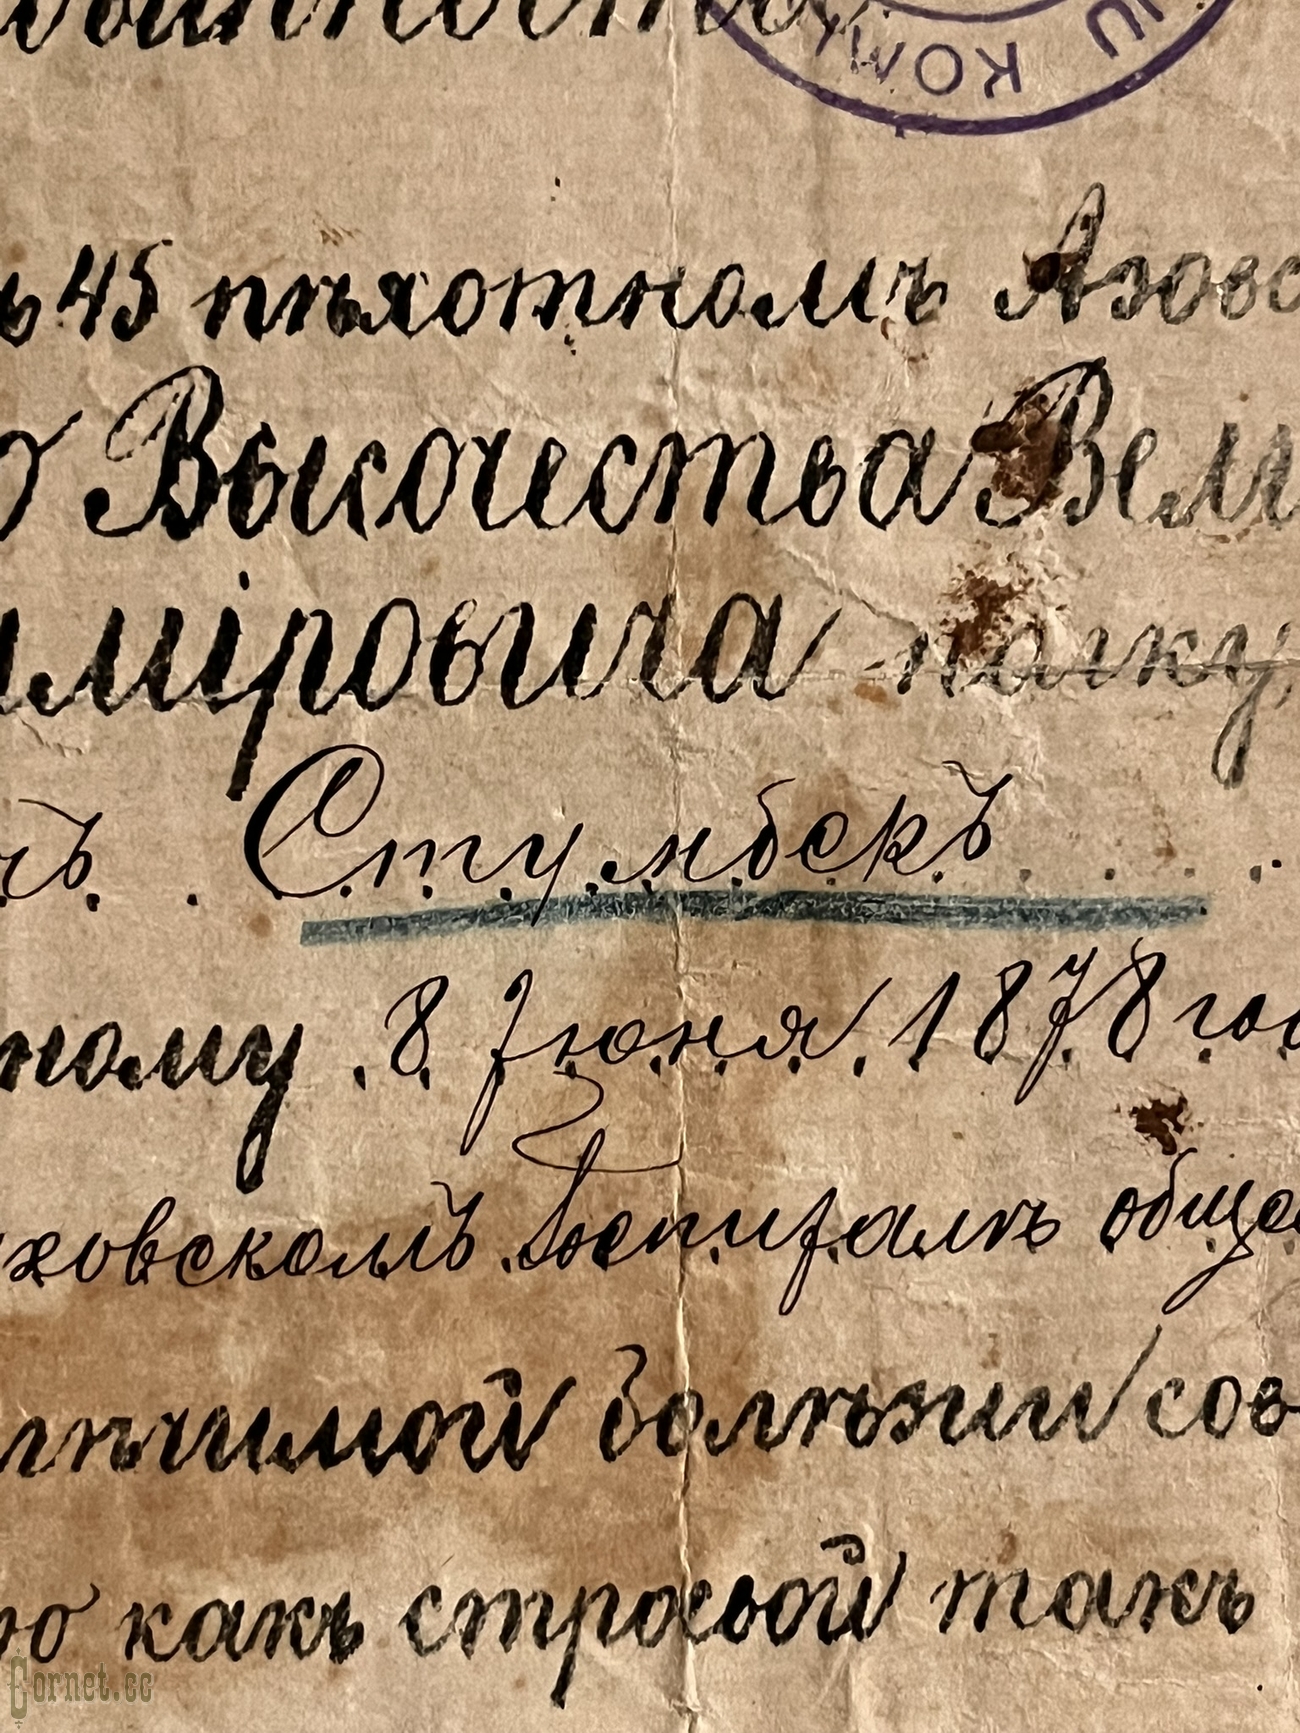 KOMI
ь 45 пѣхотномъ Азовс
о Высочества Вели
иміровича полку,
Стумбекъ
ному 8 Іюня 1878 го
ховскомъ Госпиталѣ обще
лѣчимой болѣзни сов
ю какъ строевой такъ
Cornet.cc